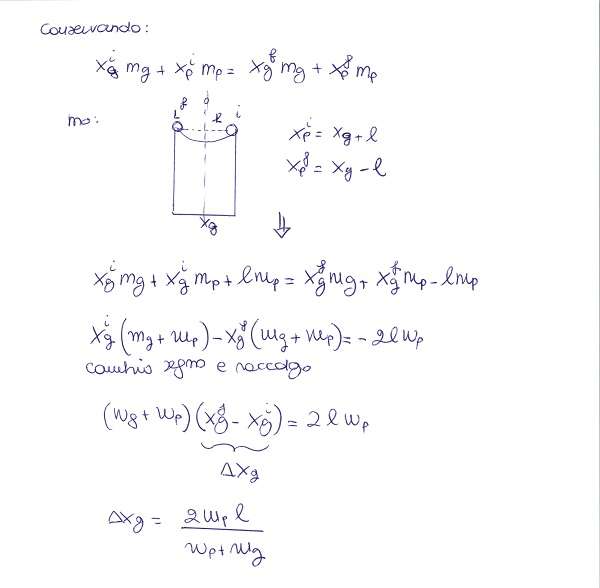 Conservando:
x_g^i m_g + x_p^i m_p = x_g^f m_g + x_p^f m_p
mo:
f i
L l
x_p^i = x_g + l
x_p^f = x_g - l
x_g
⇓
x_g^i m_g + x_g^i m_p + l m_p = x_g^f m_g + x_g^f m_p - l m_p
x_g^i (m_g + m_p) - x_g^f (m_g + m_p) = - 2 l m_p
cambio segno e raccolgo
(m_g + m_p) (x_g^f - x_g^i) = 2 l m_p
Δx_g
Δx_g = 2 m_p l / m_p + m_g